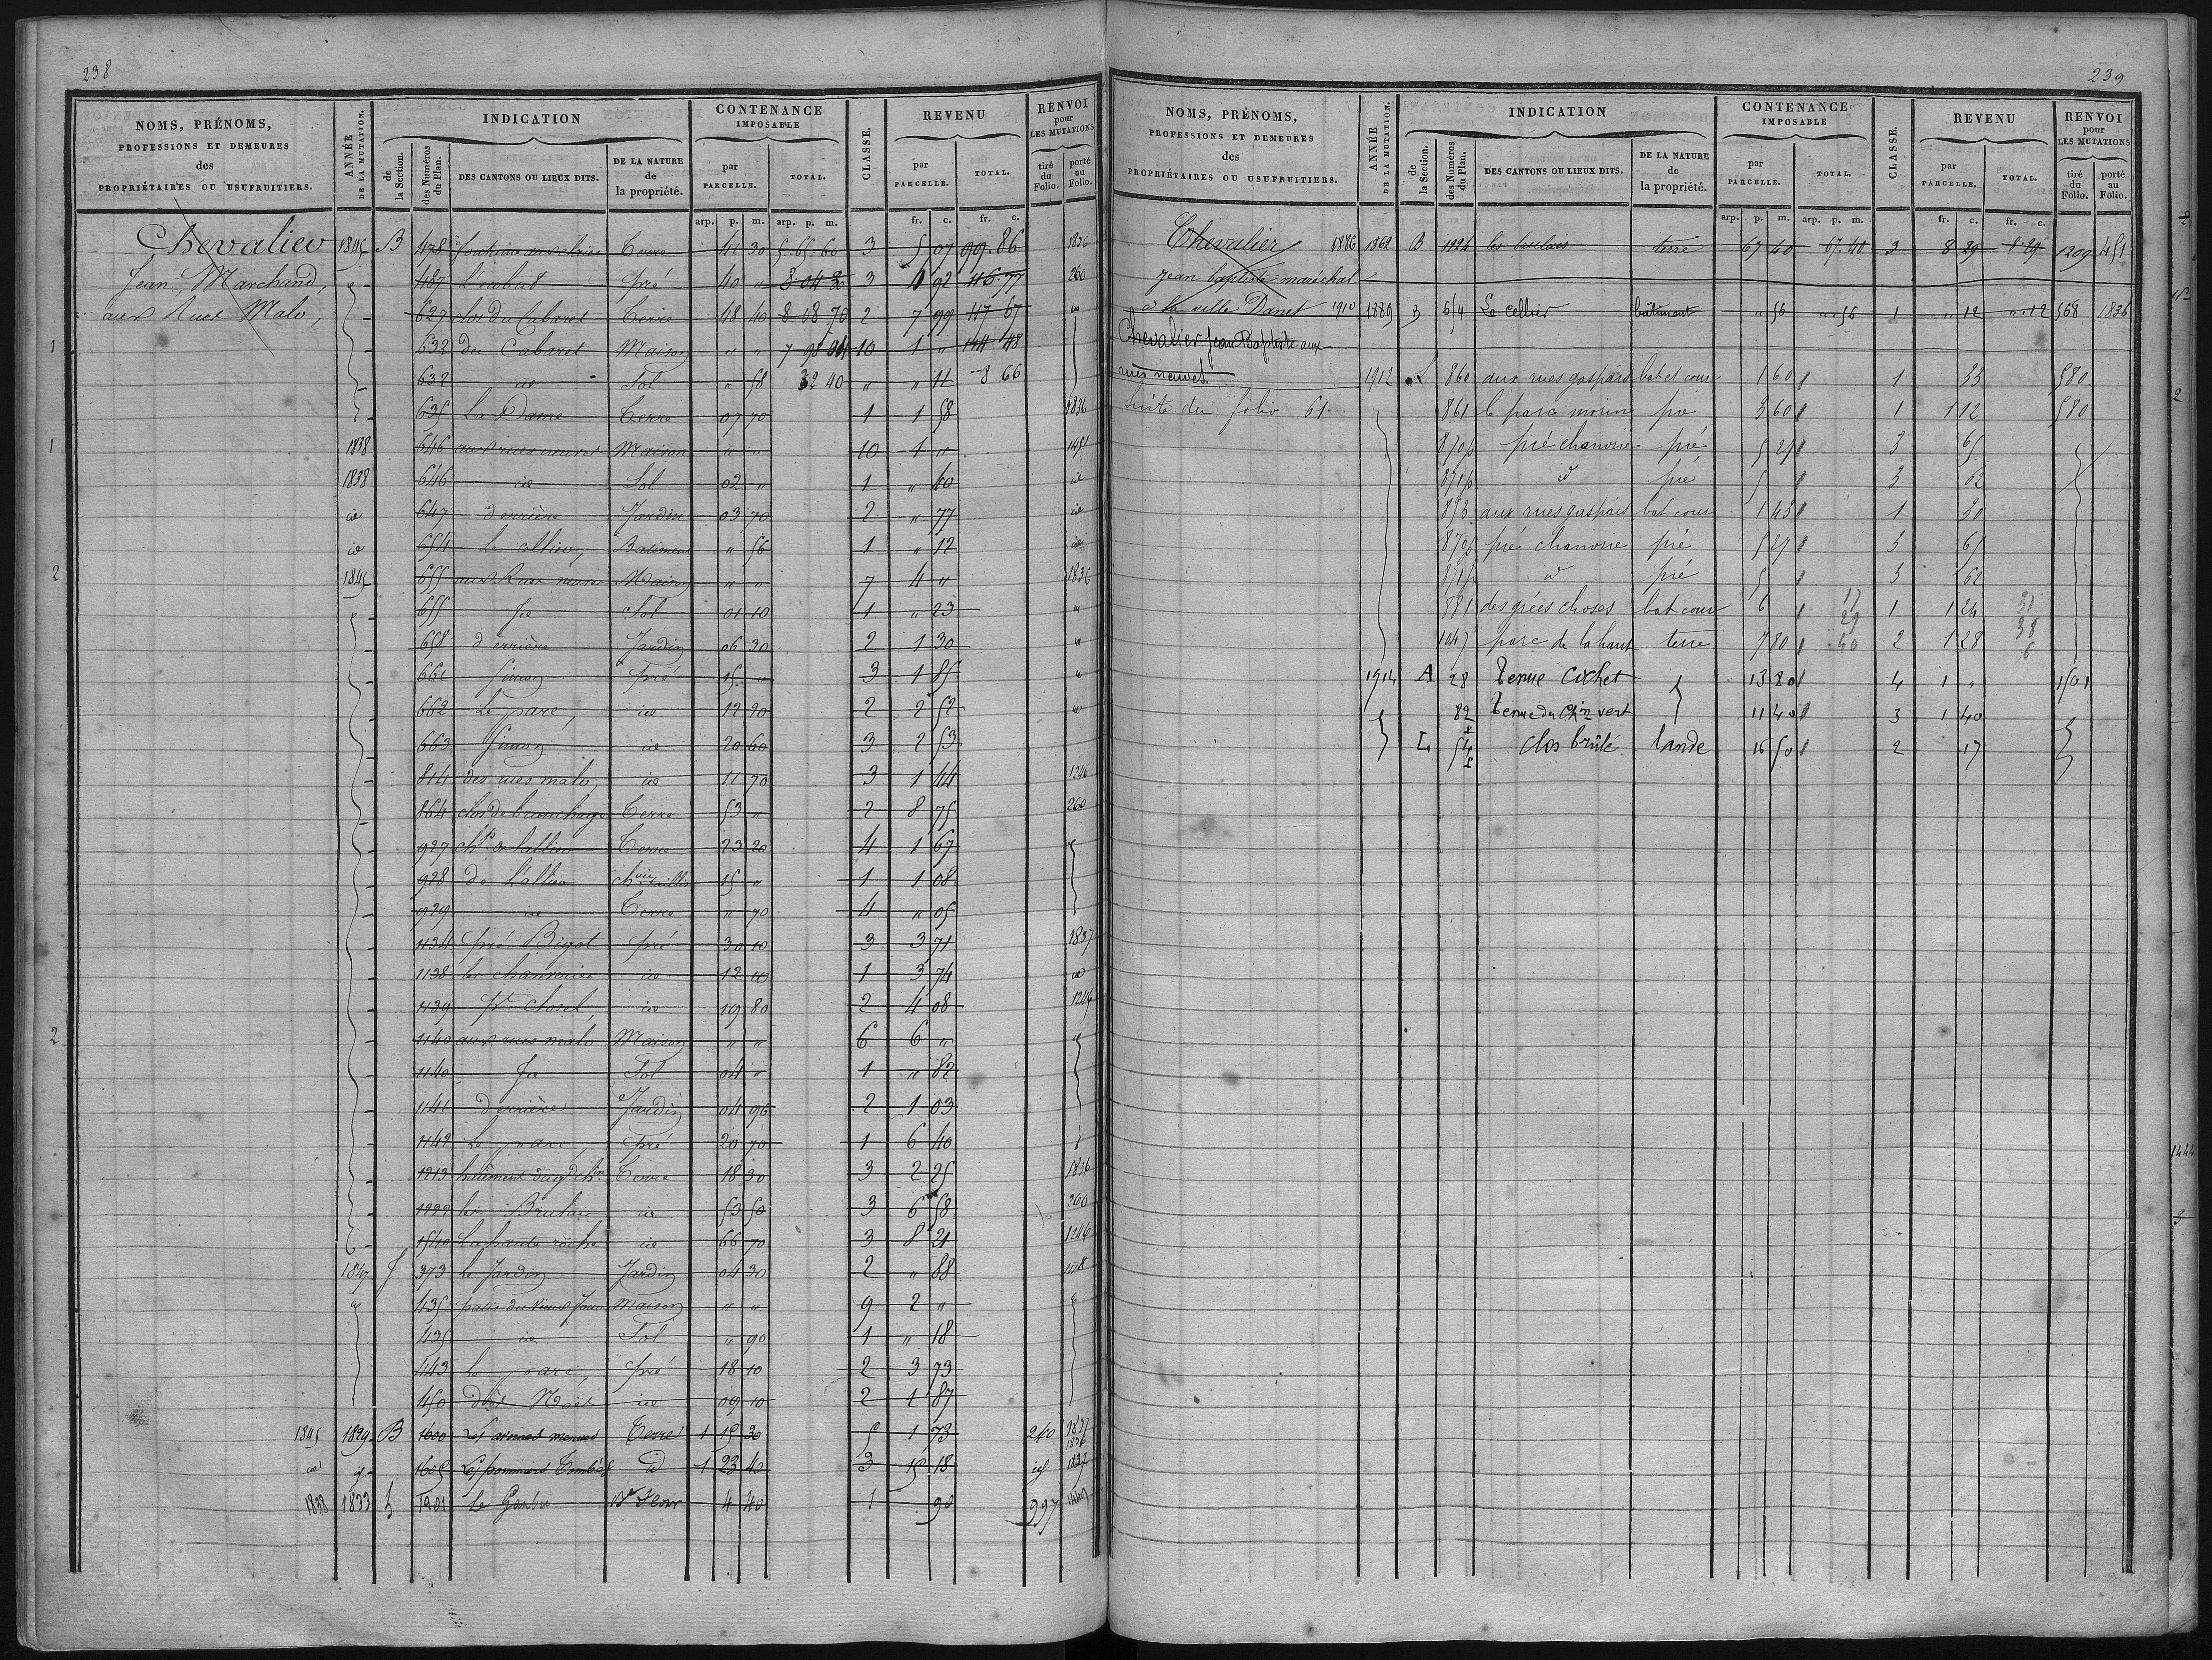 238
NOMS, PRÉNOMS, PROFESSIONS ET DEMEURES des PROPRIÉTAIRES OU USUFRUITIERS.
ANNÉE DE LA MUTATION.
INDICATION
de la Section.
des Numéros du Plan.
DES CANTONS OU LIEUX DITS.
DE LA NATURE de la propriété.
CONTENANCE IMPOSABLE
par PARCELLE.
TOTAL.
CLASSE.
REVENU
par PARCELLE.
TOTAL.
RENVOI pour LES MUTATIONS
tiré du Folio.
porté au Folio.
arp. p. m. arp. p. m. fr. c. fr. c.
Chevalier 1845 B 478 Terre 41 30 5.65.60 3 5 07 99.86 1836
Jean, Marchand, 487 L'écobut pré 40 " 8 04 30 3 4 92 46 77 260
aux Rues Malo, 627 clos du Cabaret Terre 48 40 8 08 70 2 7 99 47 67
632 du Cabaret Maison " " 7 98 04 10 1 " 144 48
632 id Sol " 58 32 40 " " 11 8 66
635 La Dame Terre 07 70 1 1 58 1836
1838 646 aux rues neuves Maison " " 10 1 " 1451
1838 646 id Sol 02 " 1 " 40 id
id 647 derrière Jardin 03 70 2 " 77 id
id 654 Le cellier, Batiment " 56 1 " 12 id
1845 655 aux Rues neuves Maison " " 7 4 " 1836
655 Id Sol 01 10 1 " 23
658 derrière Jardin 06 30 2 1 30
661 Simon pré 15 " 3 1 85
662 Le parc, id 12 20 2 2 52
663 Simon id 20 60 3 2 53
814 des rues malo, id 11 70 3 1 44 1246
864 Terre 53 " 2 8 75 260
927 Terre 23 20 4 1 67
928 de L'allier 15 " 1 1 08
929 id Terre " 70 4 " 05
1134 pré Bigot pré 30 10 3 3 71 1837
1138 les chanvries id 12 10 1 3 74 id
1139 pt closet, id 19 80 2 4 08 1246
1140 aux rues malo Maison " " 6 6 "
1140 Id Sol 04 " 1 " 82
1141 derrière Jardin 04 96 2 1 03
1142 Le parc, pré 20 70 1 6 40
1213 Terre 18 30 3 2 25 1836
1222 les Brulais id 53 50 3 6 58 260
1540 La haute roche id 66 70 3 8 21 1246
1847 J 373 Le Jardin Jardin 04 30 2 " 88
435 Maison " " 9 2 "
435 id Sol " 90 1 " 18
443 Le parc, pré 18 10 2 3 73
450 id 09 10 2 1 87
1845 1829 B 1600 Terre 1 15 30 5 1 73 240 1837 1836
id 1605 Les pommiers Tombés d 1 23 40 3 15 18 id 1837
1838 1833 1201 4 40 1 90 997
239
NOMS, PRÉNOMS, PROFESSIONS ET DEMEURES des PROPRIÉTAIRES OU USUFRUITIERS.
ANNÉE DE LA MUTATION.
INDICATION
de la Section.
des Numéros du Plan.
DES CANTONS OU LIEUX DITS.
DE LA NATURE de la propriété.
CONTENANCE IMPOSABLE
par PARCELLE.
TOTAL.
CLASSE.
REVENU
par PARCELLE.
TOTAL.
RENVOI pour LES MUTATIONS
tiré du Folio.
porté au Folio.
arp. p. m. arp. p. m. fr. c. fr. c.
Chevalier 1886 1862 B 1224 les brulais terre 67 40 67.40 3 8 29 8 29 1209 451
Jean baptiste maréchal
à la ville Danet 1910 1889 B 654 Le cellier bâtiment " 56 " 56 1 " 12 " 12 568 1836
Chevalier Jean Baptiste aux
rues neuves. 1912 L 860 aux rues gaspais bat et cour 1 60 1 33 580
Suite du folio 61. 861 le parc morin pré 3 60 1 1 12 580
870p pré chanvrie pré 5 27 3 65
871p d pré 5 3 62
853 aux rues gaspais bat cour 1 45 1 30
870p pré chanvrie pré 5 27 3 65
871p d pré 5 3 62
881 des grées choses bat cour 6 17 1 1 24 31
1047 parc de la haut terre 7 80 29 40 2 1 28 38 6
1914 A 28 Tenue Cochet 13 80 4 1 " 1501
82 Tenue du Chin vert 11 40 3 1 40
L 54 clos brûlé lande 16 50 2 17